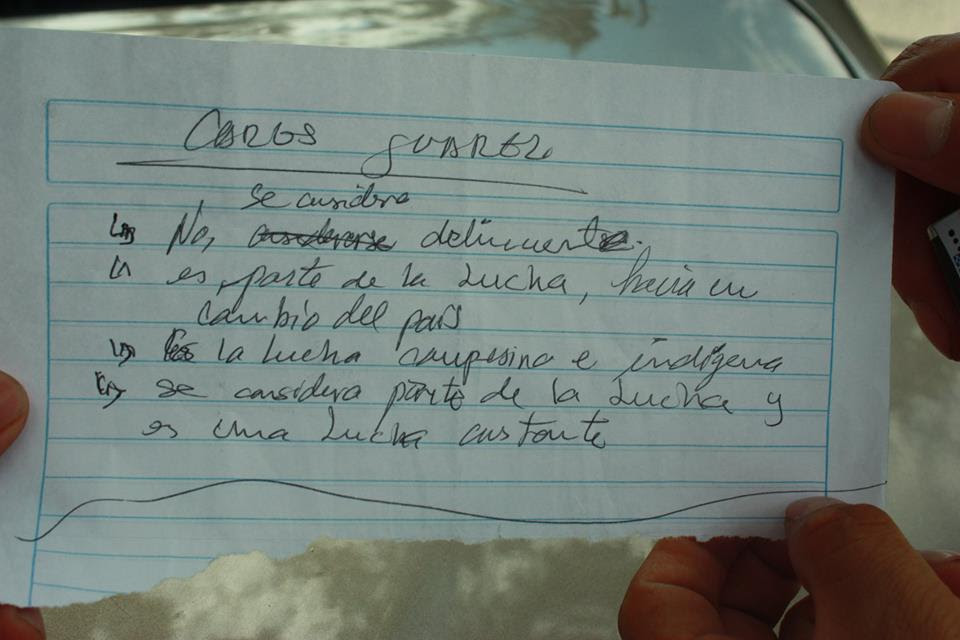 CARLOS JUAREZ
se considera
No, considerarse delincuente.
es parte de la Lucha, hacia un
cambio del país
La Lucha campesina e indígena
se considera parte de la Lucha y
es una Lucha constante